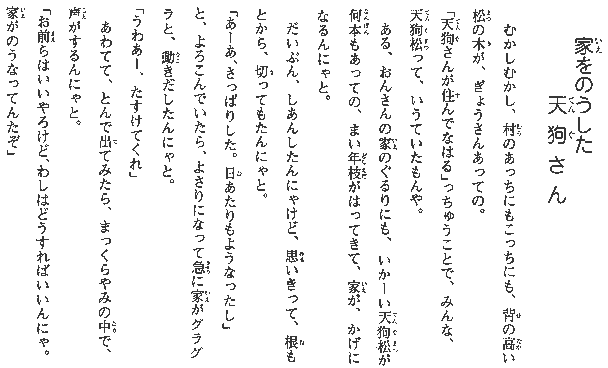 家をのうした
天狗さん
むかしむかし、村のあっちにもこっちにも、背の高い
松の木が、ぎょうさんあっての。
「天狗さんが住んでなはる」っちゅうことで、みんな、
天狗松って、いうていたもんや。
ある、おんさんの家のぐるりにも、いかーい天狗松が
何本もあっての、まい年枝がはってきて、家が、かげに
なるんにゃと。
だいぶん、しあんしたんにゃけど、思いきって、根も
とから、切ってもたんにゃと。
「あーあ、さっぱりした。日あたりもようなったし」
と、よろこんでいたら、よさりになって急に家がグラグ
ラと、動きだしたんにゃと。
「うわあー、たすけてくれ」
あわてて、とんで出てみたら、まっくらやみの中で、
声がするんにゃと。
「お前らはいいやろけど、わしはどうすればいいんにゃ。
家がのうなってんたぞ」